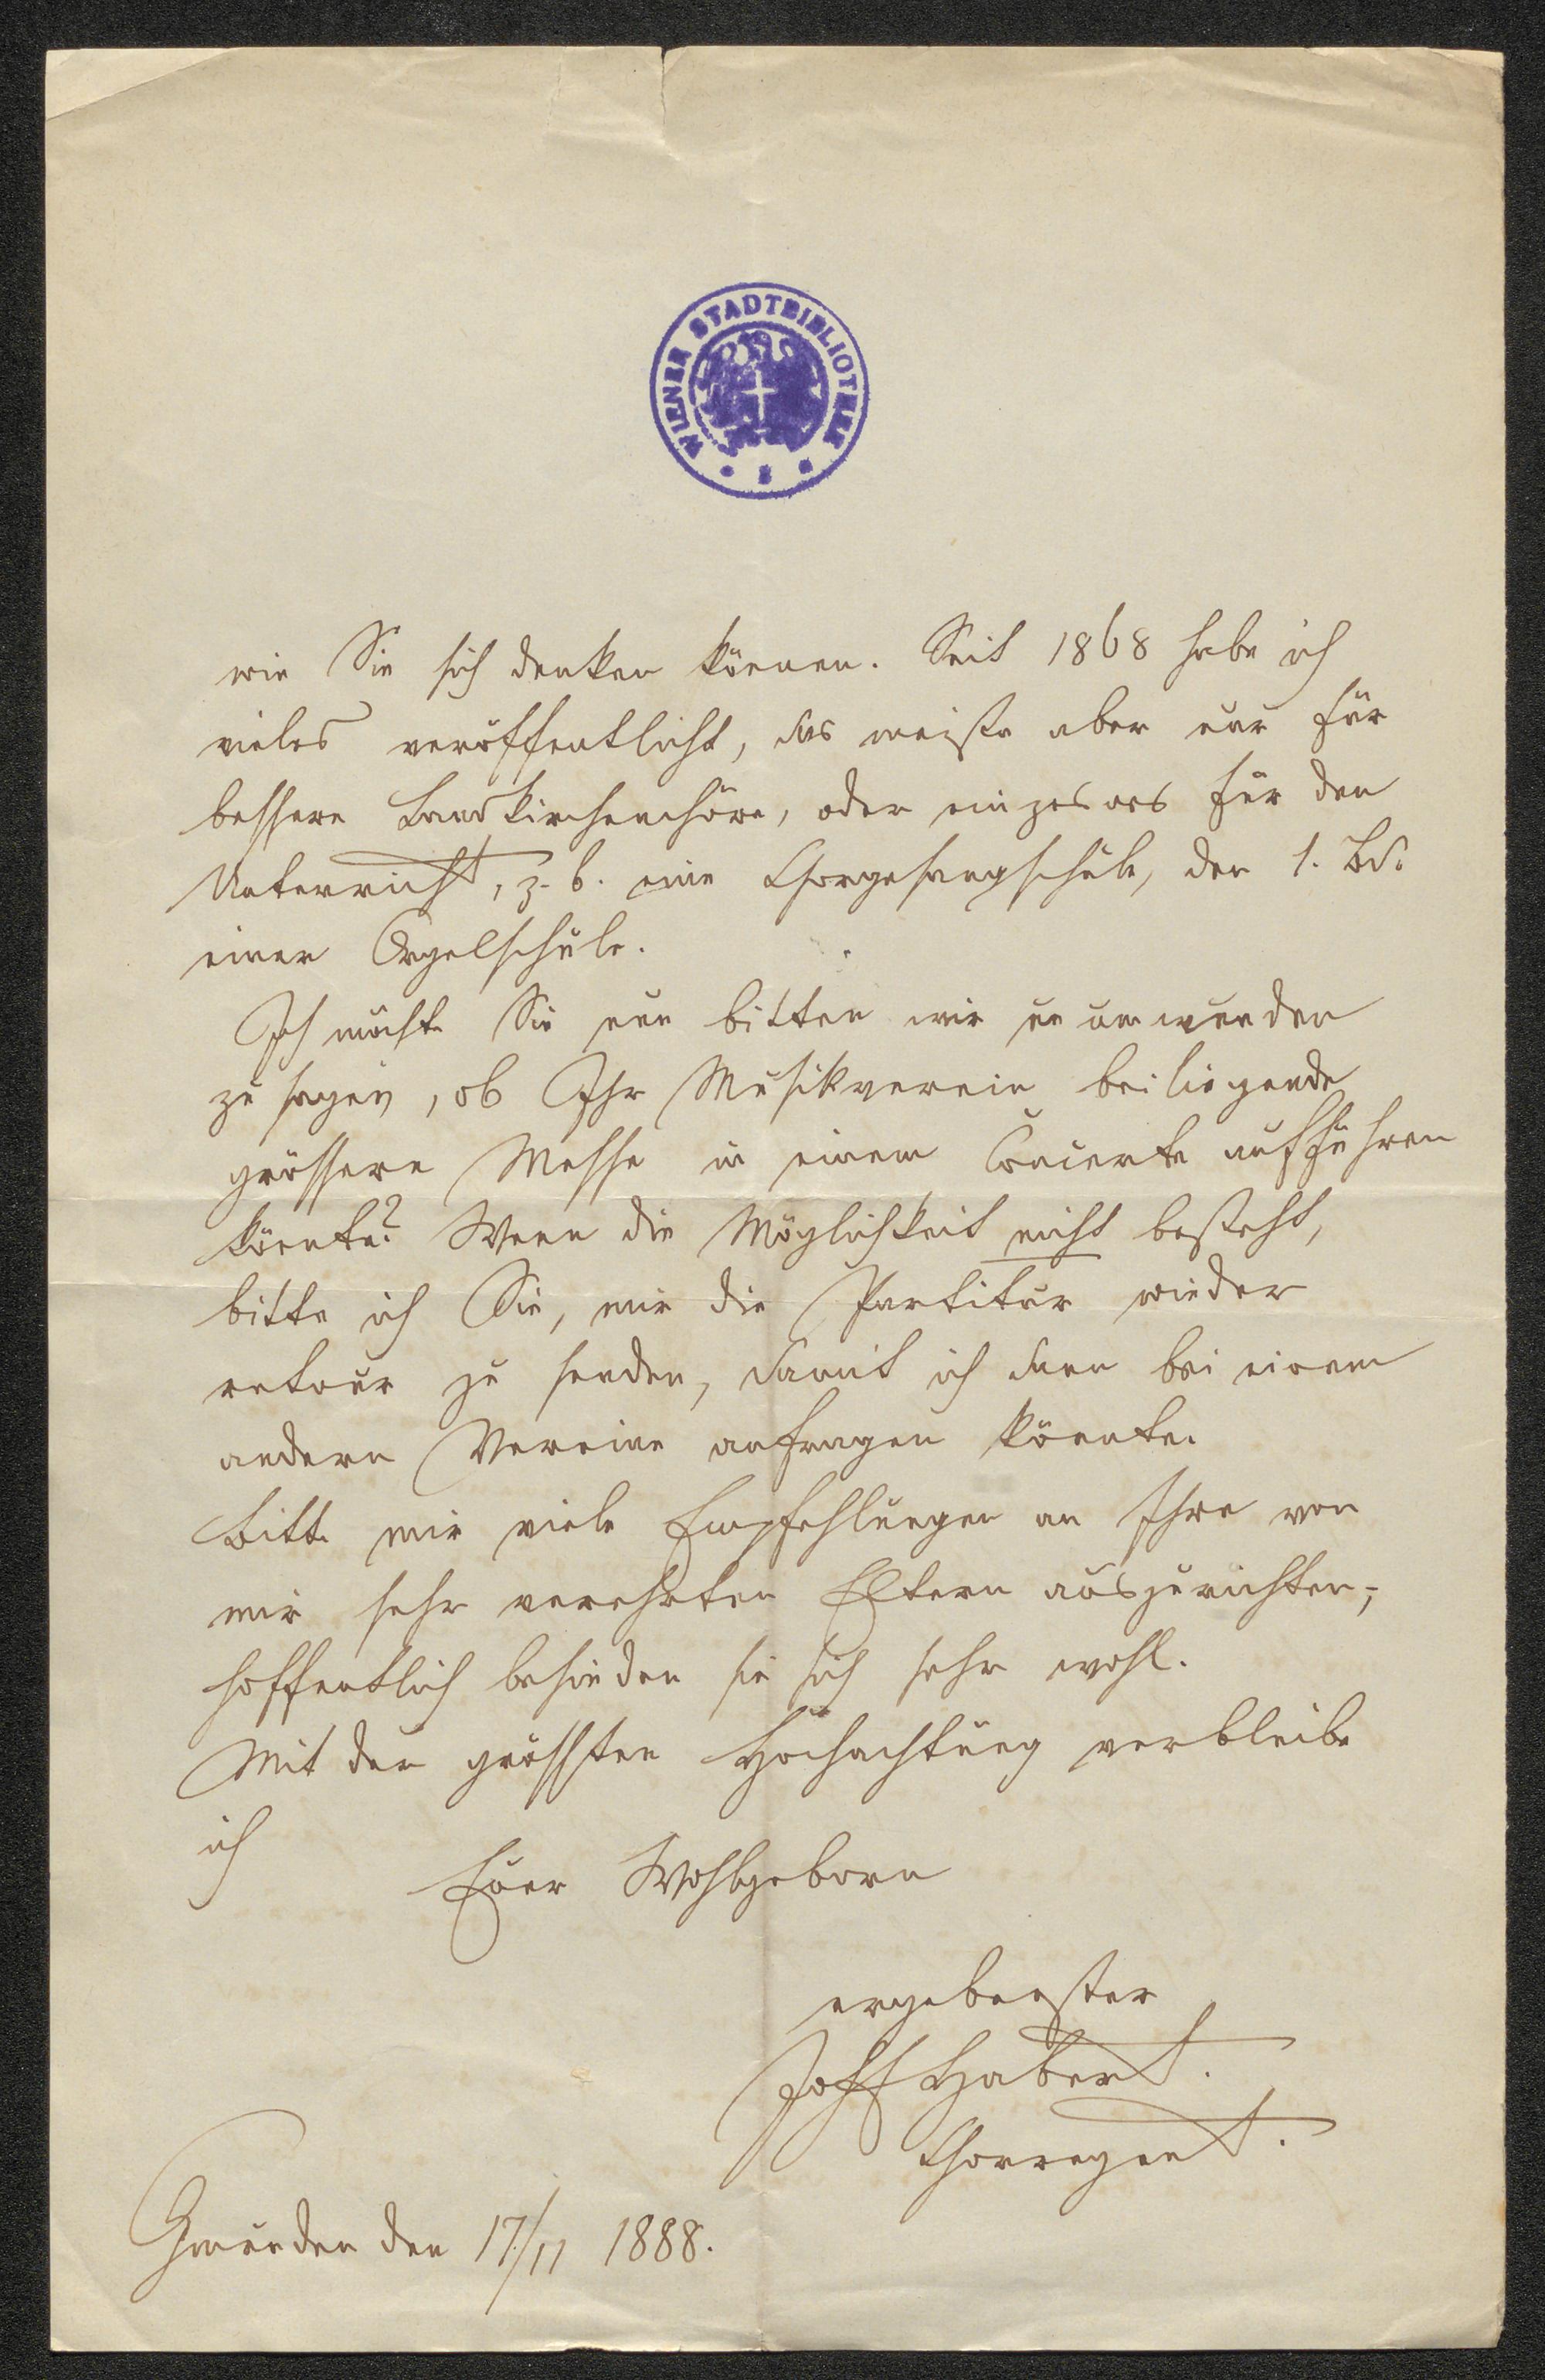 WIENER STADTBIBLIOTHEK
wie Sie sich denken können. Seit 1868 habe ich
vieles veröffentlicht, das meiste aber nur für
bessere Landkirchenchöre, oder einzelnes für den
Unterricht, z. b. eine Chorgesangschule, der 1. Bd.
einer Orgelschule.
Ich möchte Sie nun bitten mir unumwunden
zu sagen, ob Ihr Musikverein beiliegende
grössere Messe in einem Concerte aufführen
könnte? Wenn die Möglichkeit nicht besteht,
bitte ich Sie, mir die Partitur wieder
retour zu senden, damit ich dann bei einem
andern Vereine anfragen könnte.
Bitte mir viele Empfehlungen an Ihre von
mir sehr verehrten Eltern auszurichten,
hoffentlich befinden sie sich sehr wohl.
Mit der grössten Hochachtung verbleibe
ich
Euer Wohlgeborn
ergebenster
Joh Habert.
Chorregent.
Gmunden den 17/11 1888.